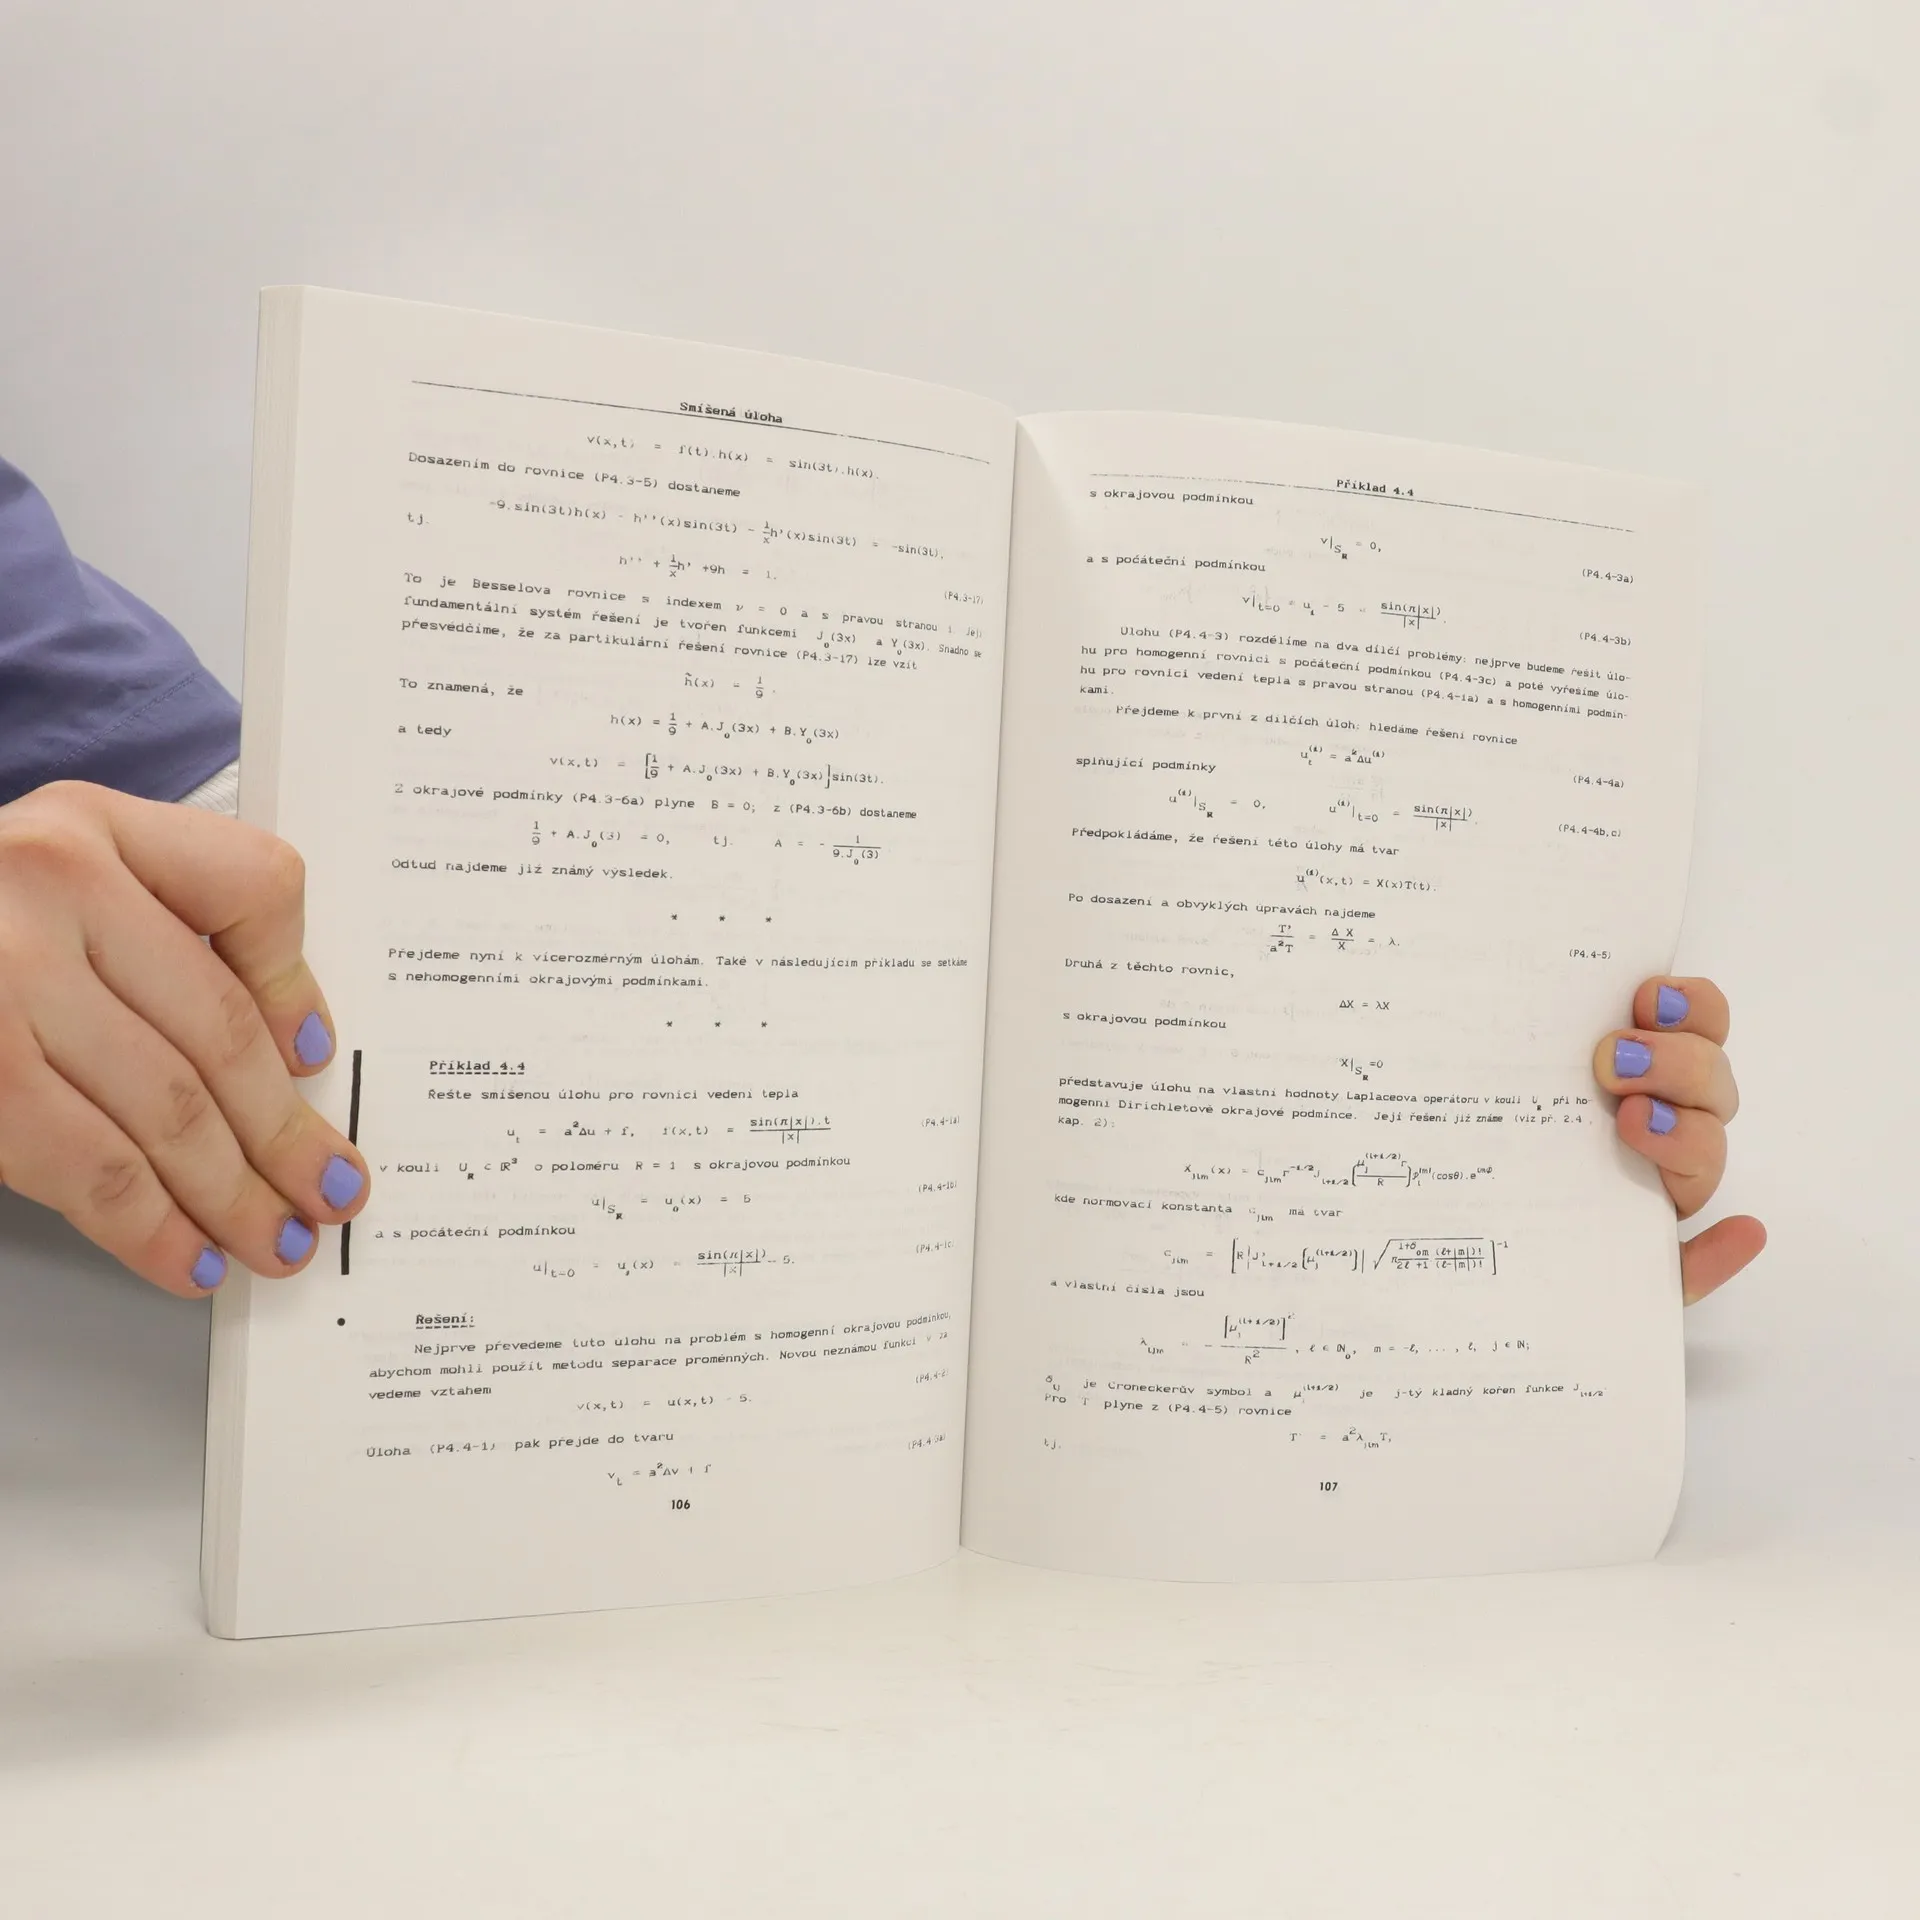 Smíšená úloha
v(x,t) = f(t).h(x) = sin(3t).h(x).
Dosazením do rovnice (P4.3-5) dostaneme
-9.sin(3t)h(x) - h''(x)sin(3t) - 1/x h'(x)sin(3t) = -sin(3t),
tj.
h'' + 1/x h' +9h = 1.
(P4.3-17)
To je Besselova rovnice s indexem ν = 0 a s pravou stranou 1. Její
fundamentální systém řešení je tvořen funkcemi J_0(3x) a Y_0(3x). Snadno se
přesvědčíme, že za partikulární řešení rovnice (P4.3-17) lze vzít
h̃(x) = 1/9 .
To znamená, že
h(x) = 1/9 + A.J_0(3x) + B.Y_0(3x)
a tedy
v(x,t) = [1/9 + A.J_0(3x) + B.Y_0(3x)]sin(3t).
Z okrajové podmínky (P4.3-6a) plyne B = 0; z (P4.3-6b) dostaneme
1/9 + A.J_0(3) = 0, tj. A = - 1/(9.J_0(3))
Odtud najdeme již známý výsledek.
* * *
Přejdeme nyní k vícerozměrným úlohám. Také v následujícím příkladu se setkáme
s nehomogenními okrajovými podmínkami.
* * *
Příklad 4.4
Řešte smíšenou úlohu pro rovnici vedení tepla
u_t = a²Δu + f, f(x,t) = sin(π|x|).t/|x|
(P4.4-1a)
v kouli U_R ⊂ ℝ³ o poloměru R = 1 s okrajovou podmínkou
u|_{S_R} = u_0(x) = 5
(P4.4-1b)
a s počáteční podmínkou
u|_{t=0} = u_1(x) = sin(π|x|)/|x| - 5.
(P4.4-1c)
Řešení:
Nejprve převedeme tuto úlohu na problém s homogenní okrajovou podmínkou,
abychom mohli použít metodu separace proměnných. Novou neznámou funkci v za
vedeme vztahem
(P4.4-2)
v(x,t) = u(x,t) - 5.
Úloha (P4.4-1) pak přejde do tvaru
(P4.4-3a)
v_t = a²Δv + f
106
Příklad 4.4
s okrajovou podmínkou
v|_{S_R} = 0,
(P4.4-3a)
a s počáteční podmínkou
v|_{t=0} = u_1 - 5 = sin(π|x|)/|x|.
(P4.4-3b)
Úlohu (P4.4-3) rozdělíme na dva dílčí problémy: nejprve budeme řešit úlo-
hu pro homogenní rovnici s počáteční podmínkou (P4.4-3c) a poté vyřešíme úlo-
hu pro rovnici vedení tepla s pravou stranou (P4.4-1a) a s homogenními podmín-
kami.
Přejdeme k první z dílčích úloh: hledáme řešení rovnice
u_t^(1) = a²Δu^(1)
(P4.4-4a)
splňující podmínky
u^(1)|_{S_R} = 0, u^(1)|_{t=0} = sin(π|x|)/|x|.
(P4.4-4b,c)
Předpokládáme, že řešení této úlohy má tvar
u^(1)(x,t) = X(x)T(t).
Po dosazení a obvyklých úpravách najdeme
T'/(a²T) = ΔX/X = λ.
(P4.4-5)
Druhá z těchto rovnic,
ΔX = λX
s okrajovou podmínkou
X|_{S_R} =0
představuje úlohu na vlastní hodnoty Laplaceova operátoru v kouli U_R při ho-
mogenní Dirichletově okrajové podmínce. Její řešení již známe (viz př. 2.4 ,
kap. 2):
X_{jlm}(x) = c_{jlm} r^{-1/2} J_{l+1/2}(μ_j^{(l+1/2)} r / R) P_l^{|m|}(cosθ).e^{imφ}.
kde normovací konstanta c_{jlm} má tvar
c_{jlm} = [R|J'_{l+1/2}(μ_j^{(l+1/2)})| √(π (1+δ_{om})/(2ℓ+1) (ℓ+|m|)!/(ℓ-|m|)!)]^{-1}
a vlastní čísla jsou
λ_{ljm} = - [μ_j^{(l+1/2)}]²/R² , ℓ ∈ ℕ_0, m = -ℓ, ... , ℓ, j ∈ ℕ;
δ_{ij} je Croneckerův symbol a μ_j^{(l+1/2)} je j-tý kladný kořen funkce J_{l+1/2}.
Pro T plyne z (P4.4-5) rovnice
T' = a²λ_{jlm}T,
tj.
107